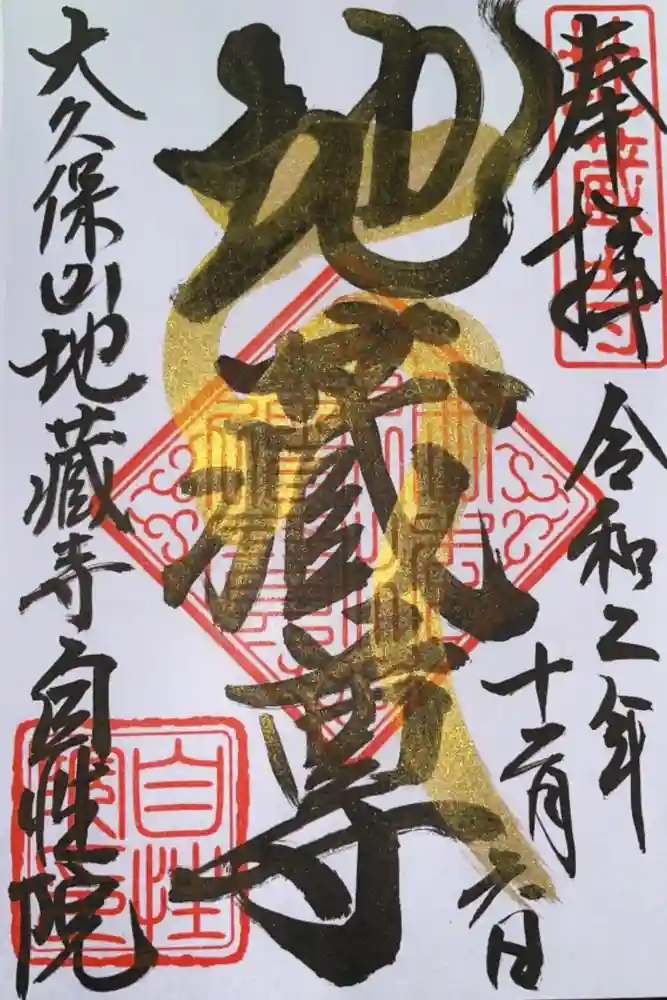 奉拝
令和二年
十二月
六日
地蔵尊
大久保山地蔵寺自性院
地蔵寺